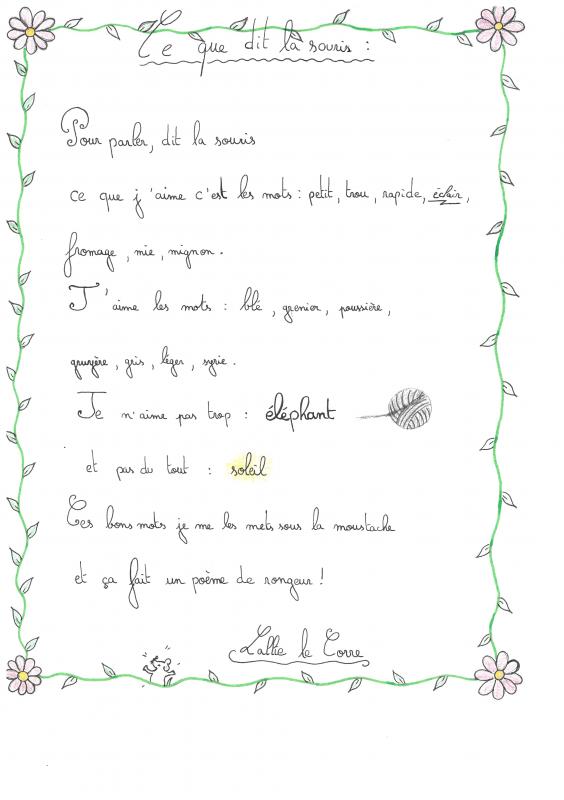 Ce que dit la souris :
Pour parler, dit la souris
ce que j'aime c'est les mots : petit, trou, rapide, éclair,
fromage, mie, mignon.
J'aime les mots : blé, grenier, poussière,
gruyère, gris, léger,
Je n'aime pas trop : éléphant
et pas du tout : soleil
Ces bons mots je me les mets sous la moustache
et ça fait un poème de rongeur !
le Corre